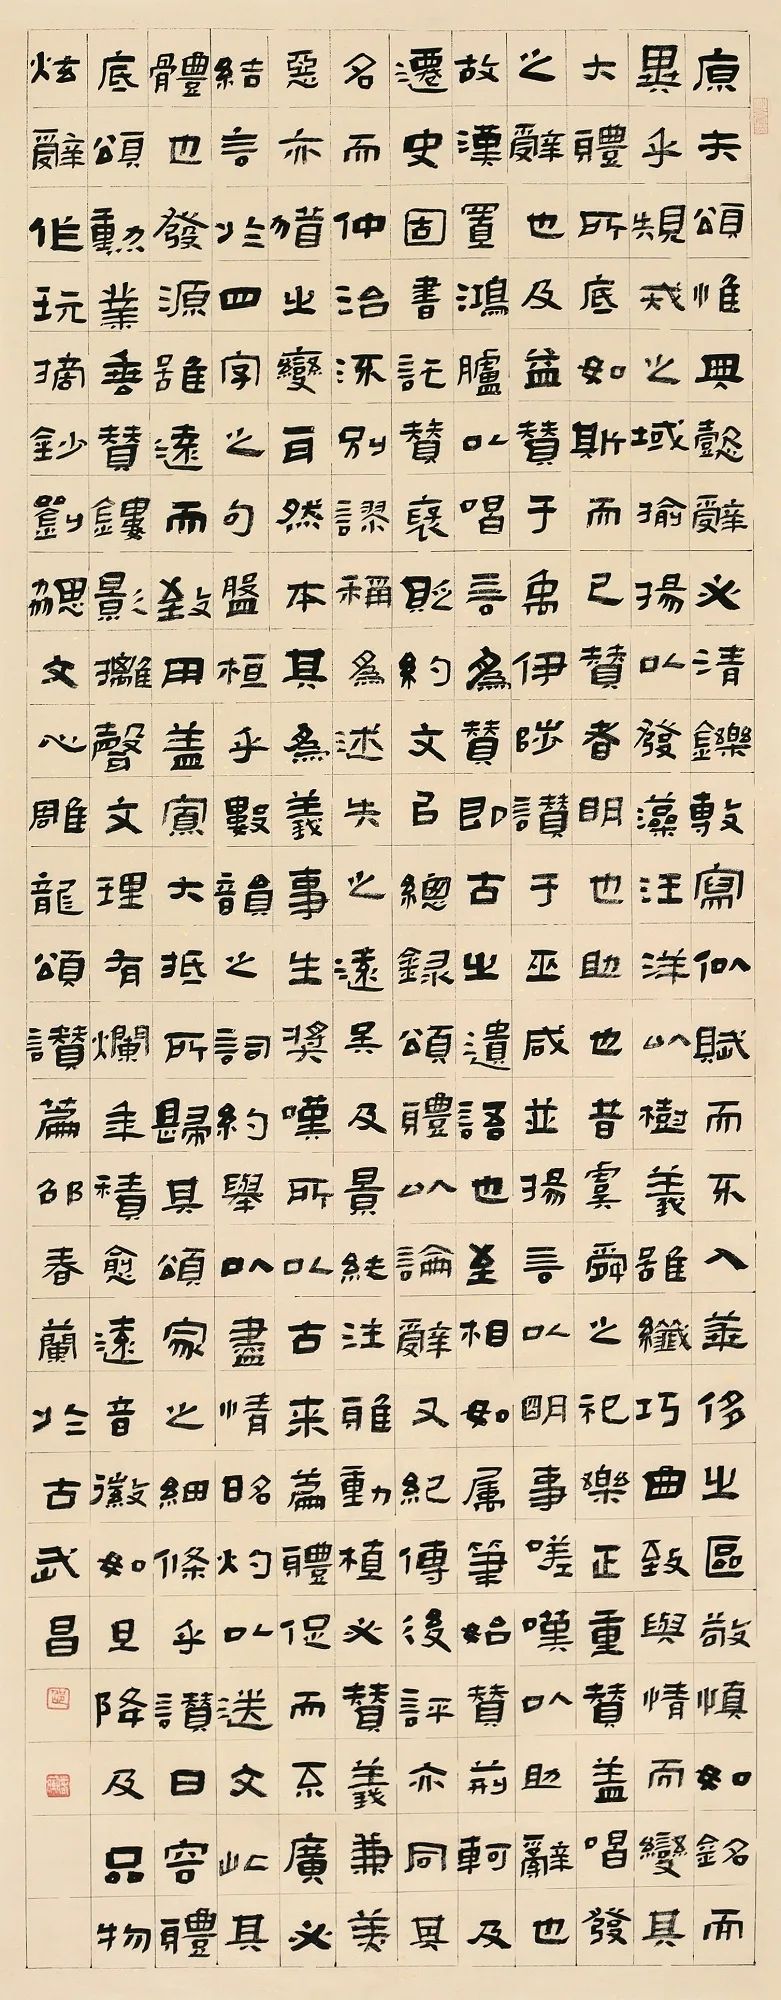 原夫頌惟典懿辭必清鑠敷寫似賦而不入華侈之區敬慎如銘而
異乎規戒之域揄揚以發藻汪洋以樹義雖纖巧曲致與情而變其
大體所底如斯而已賛者明也助也昔虞舜之祀樂正重賛蓋唱發
之辭也及益賛于禹伊陟讃于巫咸並揚言以明事嗟嘆以助辭也
故漢置鴻臚以唱言為賛即古之遺語也至相如属筆始賛荊軻及
遷史固書託賛褒貶約文以總錄頌體以論辭又紀傳後評亦同其
名而仲治流別謬稱為述失之遠矣及景純注雅動植必賛義兼美
惡亦猶之變耳然本其為義事生獎嘆所以古来篇體促而不廣必
結言於四字之句盤桓乎數韻之詞約舉以盡情昭灼以送文此其
體也發源雖遠而致用蓋寡大抵所歸其頌家之細條乎讃曰容體
底頌勳業垂賛鏤影摛聲文理有爛年積愈遠音徽如旦降及品物
炫辭作玩摘鈔劉勰文心雕龍頌讃篇邵春蘭於古武昌